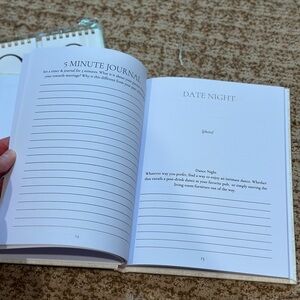 5 MINUTE JOURNAL
Set a timer & journal for 5 minutes. What is it about your
you towards marriage? Why is this different from your
14
DATE NIGHT
Dance Night
Whatever way you prefer, find a way to enjoy an intimate dance. Whether
that entails a post-drink dance at your favorite pub, or simply moving the
living room furniture out of the way.
15